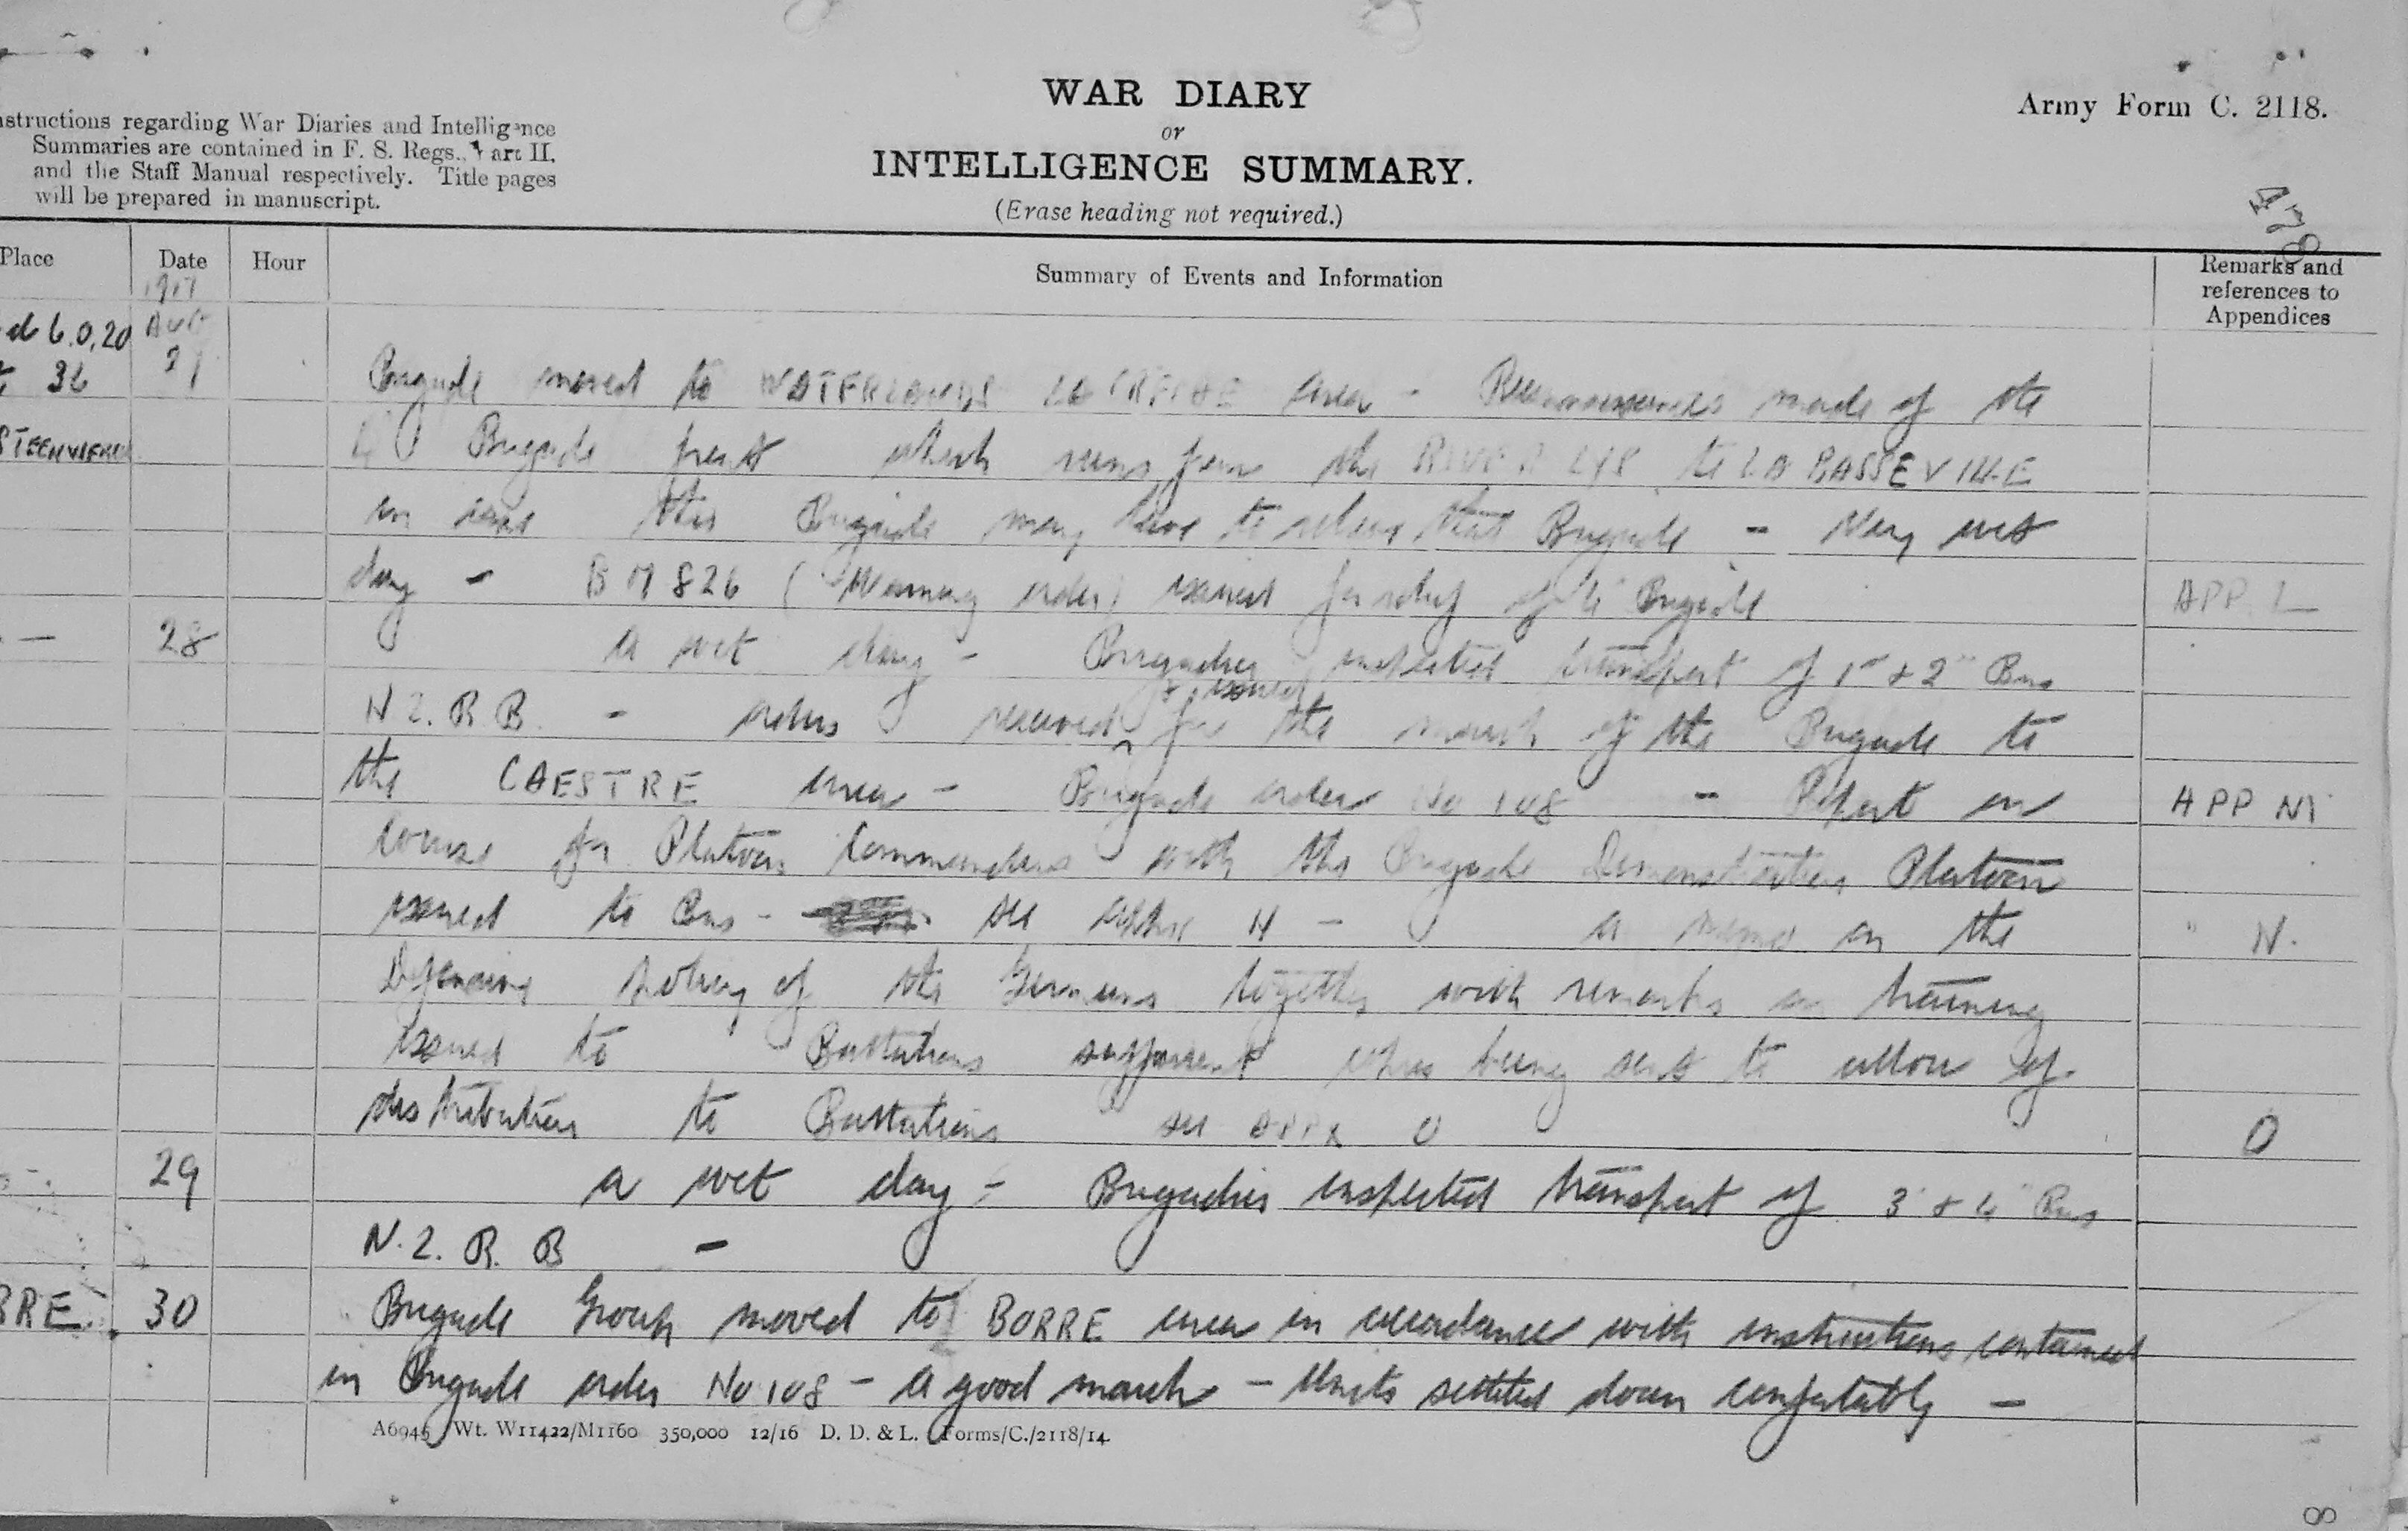 WAR DIARY
or
INTELLIGENCE SUMMARY.
(Erase heading not required.)
Army Form C. 2118.
478
nstructions regarding War Diaries and Intelligence
Summaries are contained in F. S. Regs., Part II.
and the Staff Manual respectively. Title pages
will be prepared in manuscript.
Place Date Hour Summary of Events and Information Remarks and references to Appendices
1917
6.0.20 AUG
36 27 Brigade moved to area - Reconnaissances made of the
STEENWERCK Brigade front which runs from the RIVER LYS to LA BASSEVILLE
in case this Brigade may have to relieve that Brigade - Very wet
day - BM 826 (Warning order) issued for relief of 4" Brigade APP. L
- 28 A wet day - Brigadier inspected transport of 1st & 2" Bns
N.Z.R.B. - orders received & issued for the march of the Brigade to
the CAESTRE area - Brigade order No 108 - Report on APP M
course for Platoon Commanders with the Brigade Demonstration Platoon
issued to Bns - see appx N - a memo on the " N.
Defensive policy of the Germans together with remarks on training
issued to Battalions sufficient copies being sent to allow of
distribution to Battalions see APPX O O
29 a wet day - Brigadier inspected transport of 3" & 4" Bns
N.Z.R.B -
RRE. 30 Brigade Group moved to BORRE area in accordance with instructions contained
in Brigade order No 108 - A good march - Units settled down comfortably -
A6945 Wt. W11422/M1160 350,000 12/16 D. D. & L. Forms/C./2118/14.
8